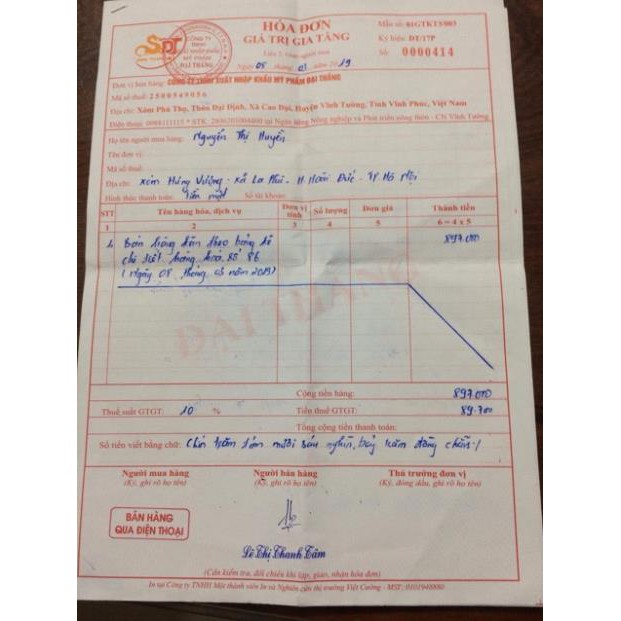 HÓA ĐƠN
GIÁ TRỊ GIA TĂNG
Liên 2: Giao người mua
Ngày 08 tháng 03 năm 2019
Mẫu số: 01GTKT3/003
Ký hiệu: DT/17P
Số: 0000414
SDT
CÔNG TY
TNHH
XUẤT NHẬP KHẨU
MỸ PHẨM
ĐẠI THẮNG
Đơn vị bán hàng: CÔNG TY TNHH XUẤT NHẬP KHẨU MỸ PHẨM ĐẠI THẮNG
Mã số thuế: 2500549056
Địa chỉ: Xóm Phú Thọ, Thôn Đại Định, Xã Cao Đại, Huyện Vĩnh Tường, Tỉnh Vĩnh Phúc, Việt Nam
Điện thoại: * STK: tại Ngân hàng Nông nghiệp và Phát triển nông thôn - CN Vĩnh Tường
Họ tên người mua hàng: Nguyễn Thị Huyền
Tên đơn vị:
Mã số thuế:
Địa chỉ: xóm Hùng Vương - xã La Phù - H. Hoài Đức - TP. Hà Nội
Hình thức thanh toán: Tiền mặt Số tài khoản:
STT Tên hàng hóa, dịch vụ Đơn vị tính Số lượng Đơn giá Thành tiền
1 2 3 4 5 6 = 4 x 5
1. Bán hàng theo bảng kê 897.000
chi tiết hàng hoá số 86
(Ngày 08 tháng 03 năm 2019)
ĐẠI THẮNG
Cộng tiền hàng: 897.000
Thuế suất GTGT: 10 % Tiền thuế GTGT: 89.700
Tổng cộng tiền thanh toán:
Số tiền viết bằng chữ: Chín trăm tám mươi sáu nghìn, bảy trăm đồng chẵn./
Người mua hàng Người bán hàng Thủ trưởng đơn vị
(Ký, ghi rõ họ tên) (Ký, ghi rõ họ tên) (Ký, đóng dấu, ghi rõ họ tên)
BÁN HÀNG
QUA ĐIỆN THOẠI
Lê Thị Thanh Tâm
(Cần kiểm tra, đối chiếu khi lập, giao, nhận hóa đơn)
In tại Công ty TNHH Một thành viên In và Một cân thị trường Việt Cường - MST: 0101948880